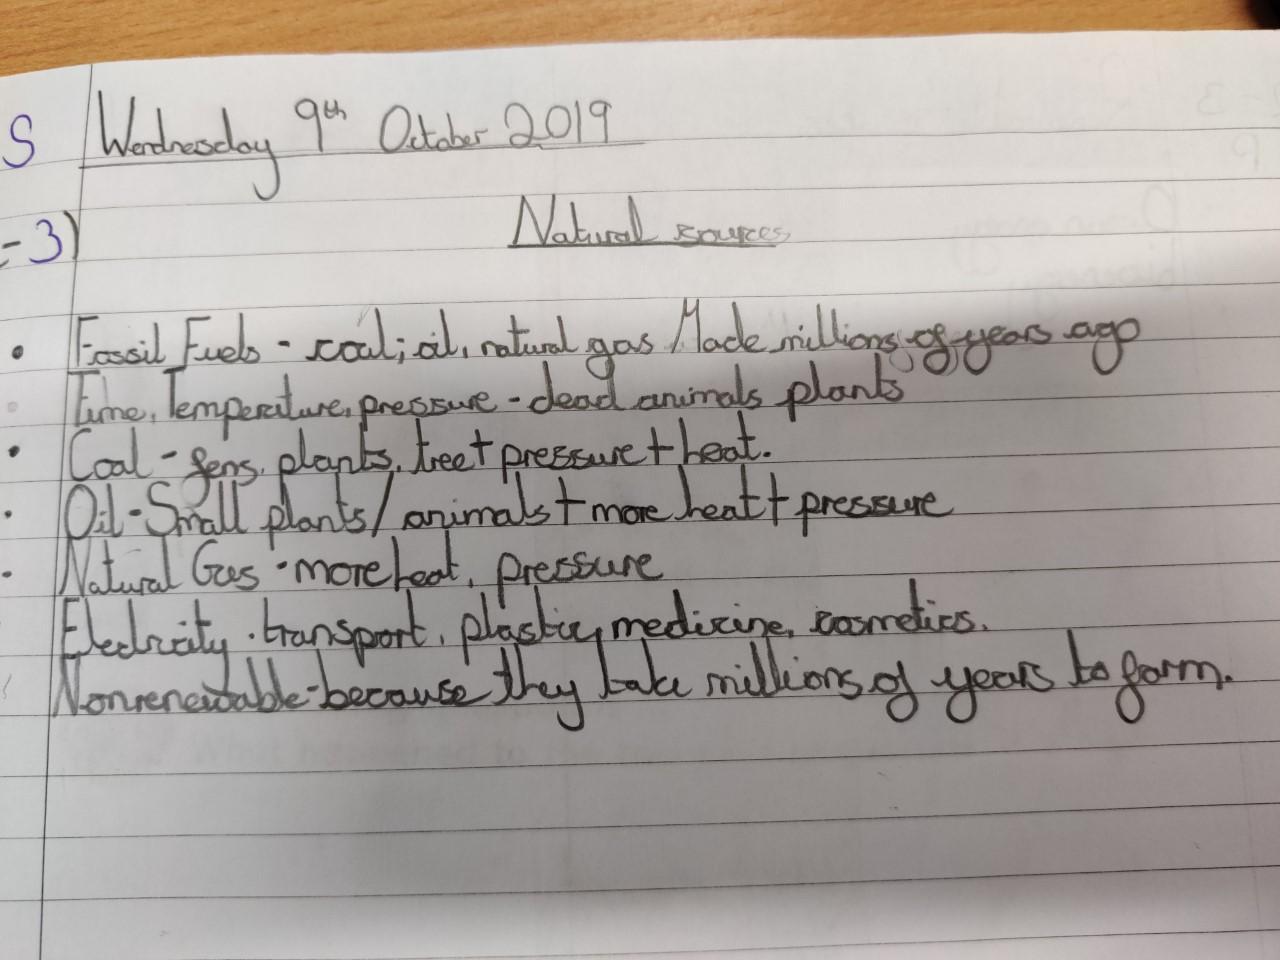 S Wednesday 9th October 2019
-3) Natural sources
• Fossil Fuels - coal, oil, natural gas Made millions of years ago
Time, Temperature, pressure - dead animals plants
• Coal - fens, plants, tree + pressure + heat.
• Oil - Small plants / animals + more heat + pressure
• Natural Gas - more heat, pressure
Electricity, transport, plastic, medicine, cosmetics.
Nonrenewable - because they take millions of years to form.